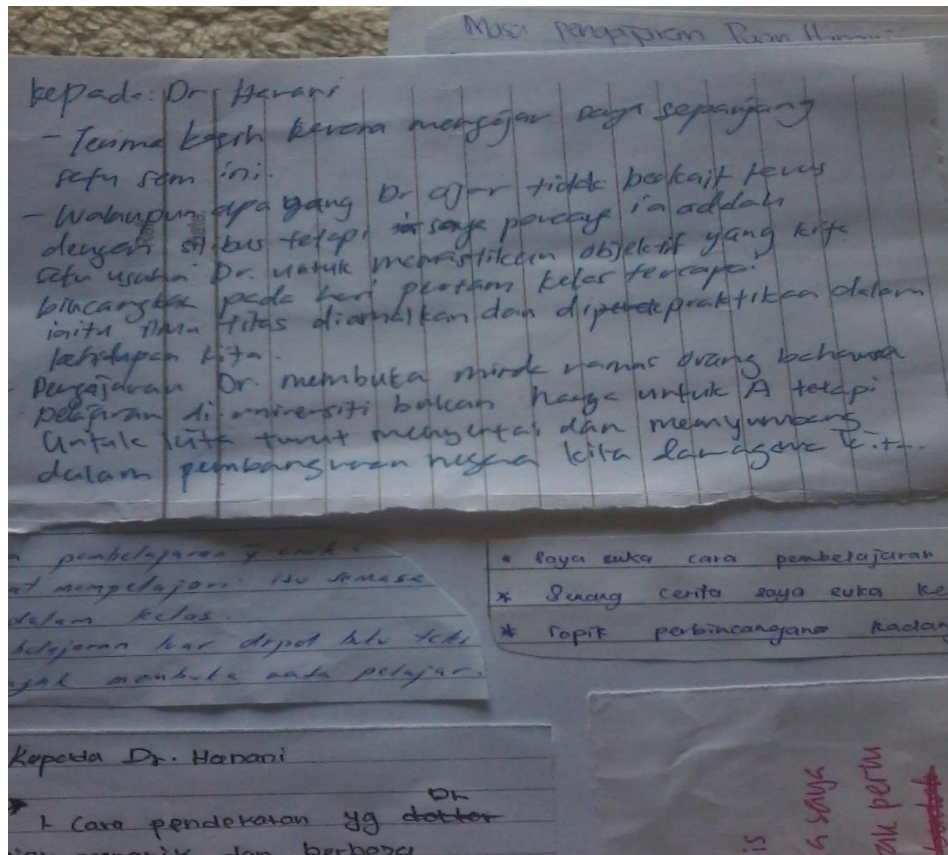 Masa pengajaran Puan Hanani
Kepada: Dr Hanani
- Terima kasih kerana mengajar saya sepanjang
satu sem ini.
- Walaupun apa yang Dr ajar tidak berkait terus
dengan silibus tetapi saya percaya ia adalah
satu usaha Dr. untuk memastikan objektif yang kita
bincangkan pada hari pertam kelas tercapai
iaitu ilmu titas diamalkan dan dipraktikkan dalam
kehidupan kita.
- Pengajaran Dr. membuka minda ramai orang bahawa
pelajaran di universiti bukan hanya untuk A tetapi
untuk kita turut menyertai dan menyumbang
dalam pembangunan negara kita dan agama kita.
pembelajaran y unik.
mempelajari isu semasa
dalam kelas.
belajaran luar drpd buku teks
membuka mata pelajar.
* Saya suka cara pembelajaran
* Senang cerita saya suka ke
* Topik perbincangan kadan
Kepada Dr. Hanani
1. Cara pendekatan yg Dr doktor
menarik dan berbeza
is
a saya
ak perlu